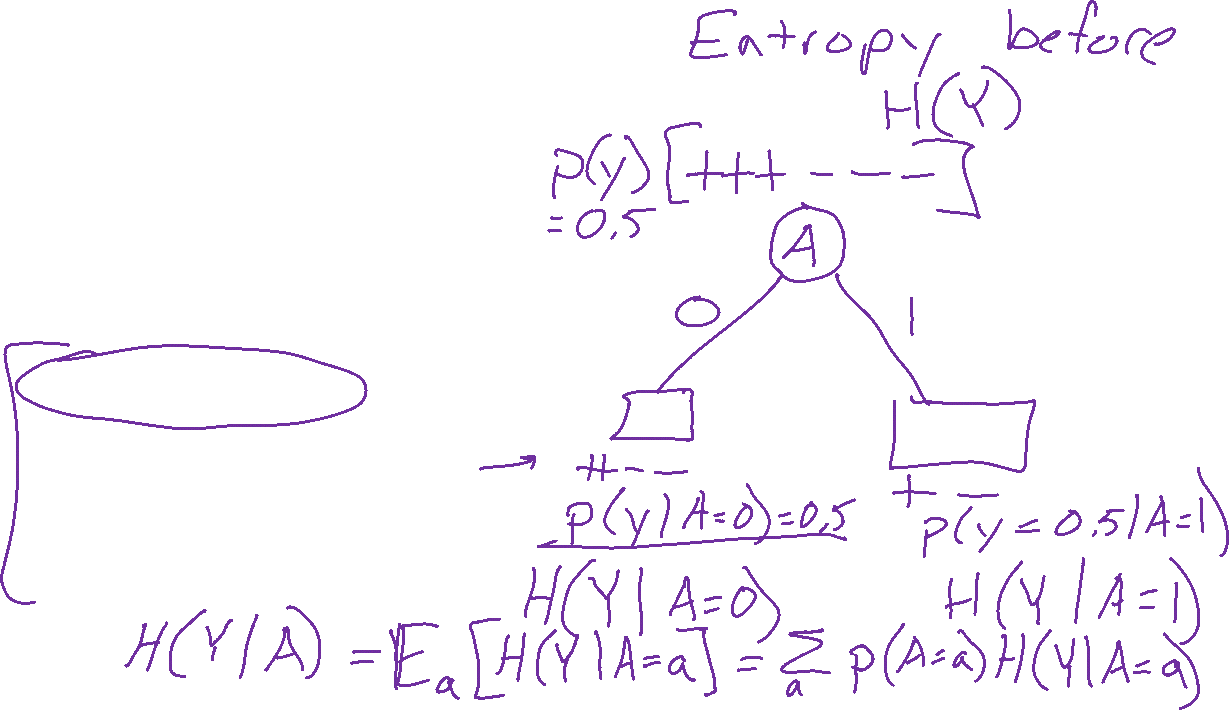 Entropy before
H(Y)
p(y) [+++ - - -]
= 0.5
A
0 1
→ ++ - - + -
p(y | A=0) = 0.5 p(y = 0.5 | A=1)
H(Y | A=0) H(Y | A=1)
H(Y | A) = E_a [H(Y | A=a] = Σ_a p(A=a) H(Y | A=a)